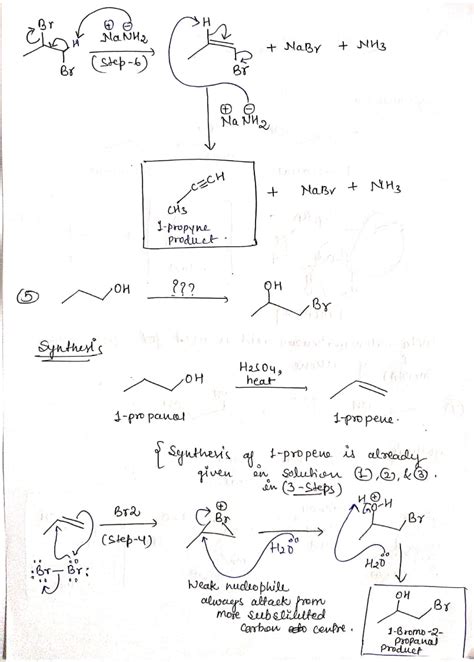 Br
H
⊕ ⊖
NaNH2
(Step-6)
Br
H
Br
+ NaBr + NH3
⊕ ⊖
NaNH2
C≡CH
CH3
1-propyne
product.
+ NaBr + NH3
⑤
OH
???
OH
Br
Synthesis
OH
H2SO4,
heat
1-propanol
1-propene.
{ Synthesis of 1-propene is already
given in solution (1), (2), & (3).
in (3-Steps)
Br2
(Step-4)
Br–Br:
⊕
Br
H2O
H ⊕
O-H
Br
H2O
Weak nucleophile
always attack from
more substituted
carbon centre.
OH
Br
1-Bromo-2-
propanol
Product